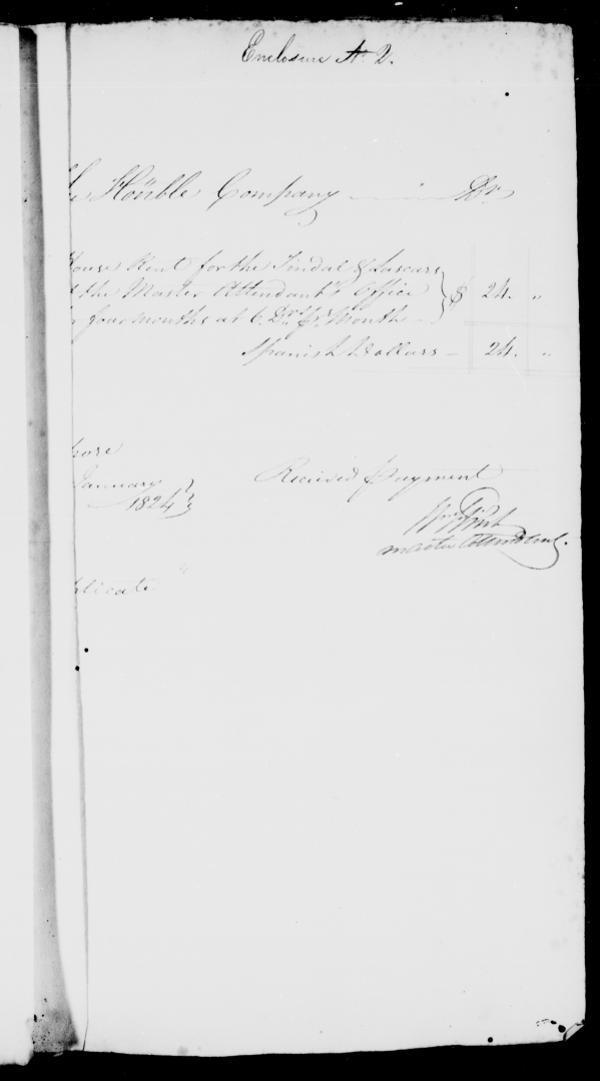 Enclosure No 2.
Honble Company Dr
House Rent for the Tindal & Lascars
the Master Attendant's Office $ 24. "
four months at 6. Drs pr Month
Spanish Dollars - 24. "
pore
January Received payment
1824
Wm Flint
Master Attendant.
plicate